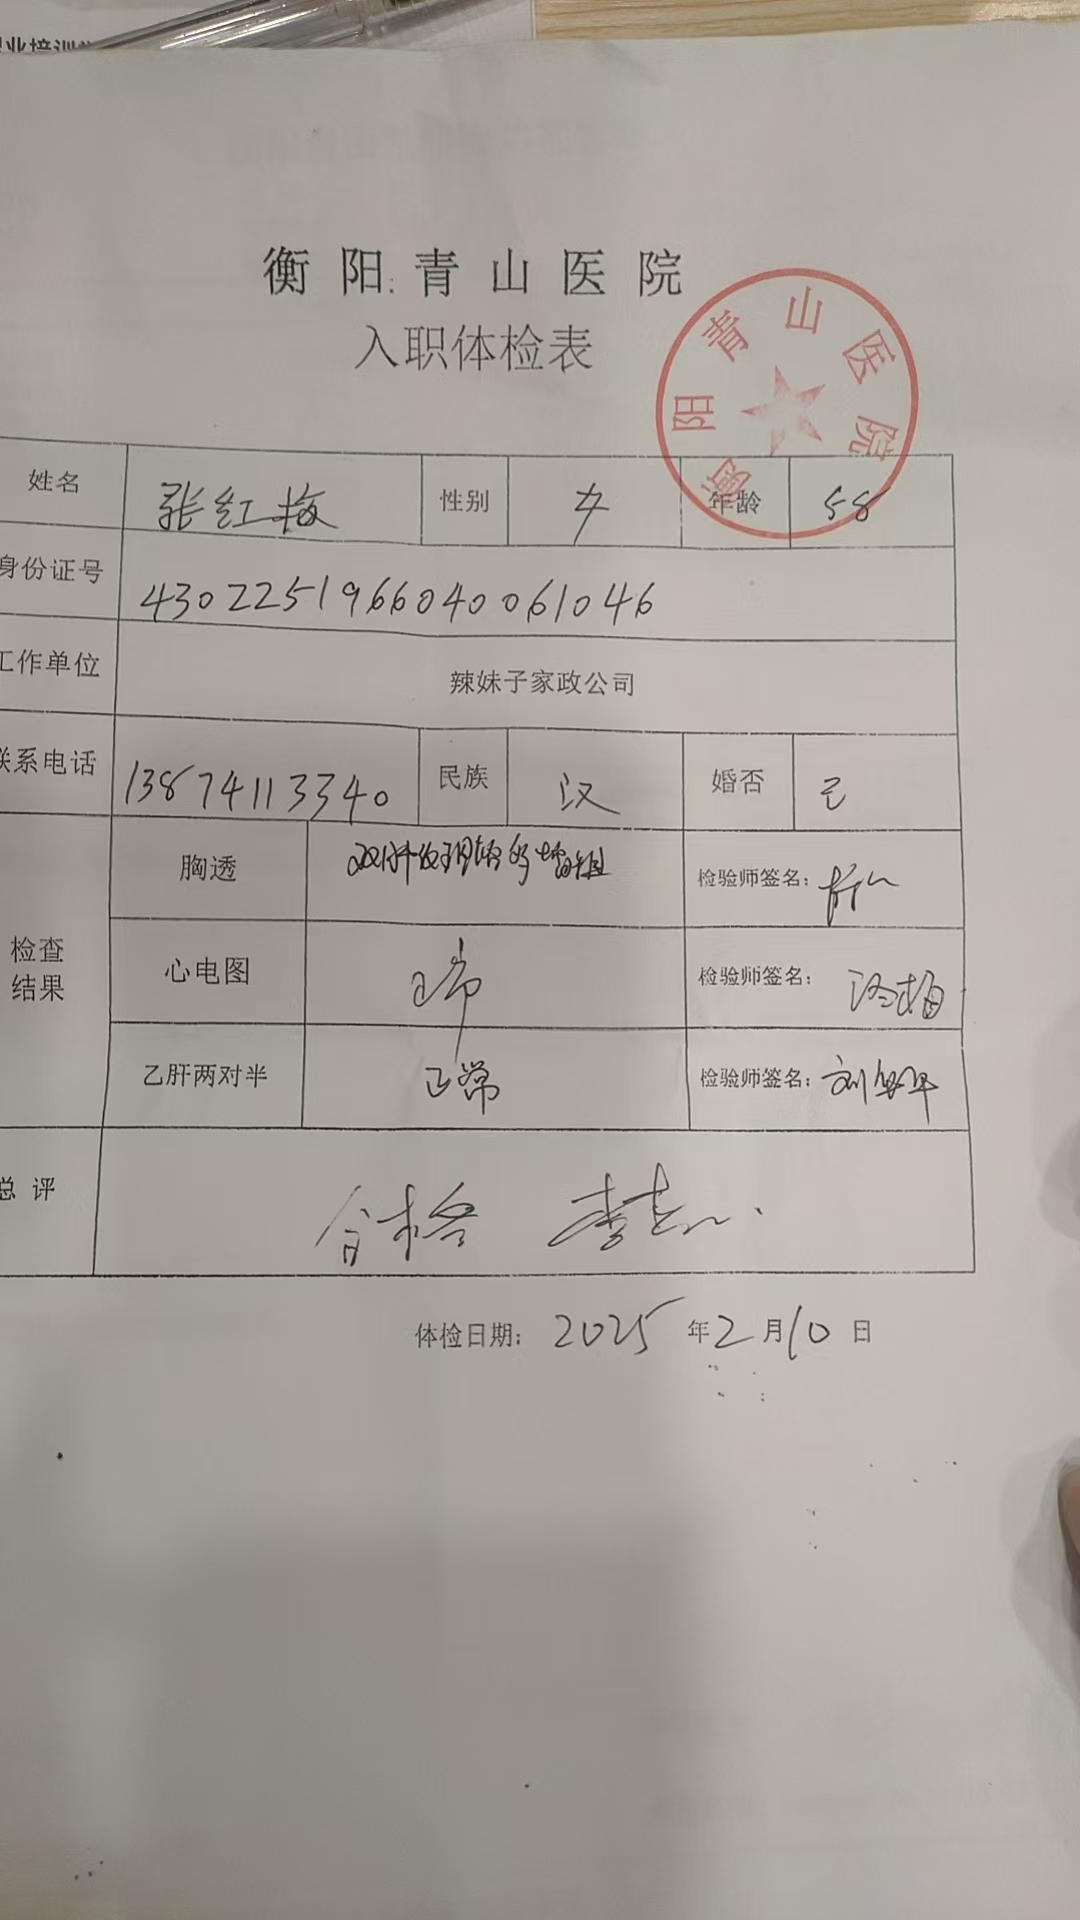 业培训
衡阳青山医院
入职体检表
衡阳青山医院
姓名 张红梅 性别 女 年龄 58
身份证号 4302251966040061046
工作单位 辣妹子家政公司
联系电话 13874113340 民族 汉 婚否 已
检查结果
胸透 双肺纹理 检验师签名:
心电图 正常 检验师签名:
乙肝两对半 正常 检验师签名: 刘
总评 合格 李志
体检日期: 2025年2月10日